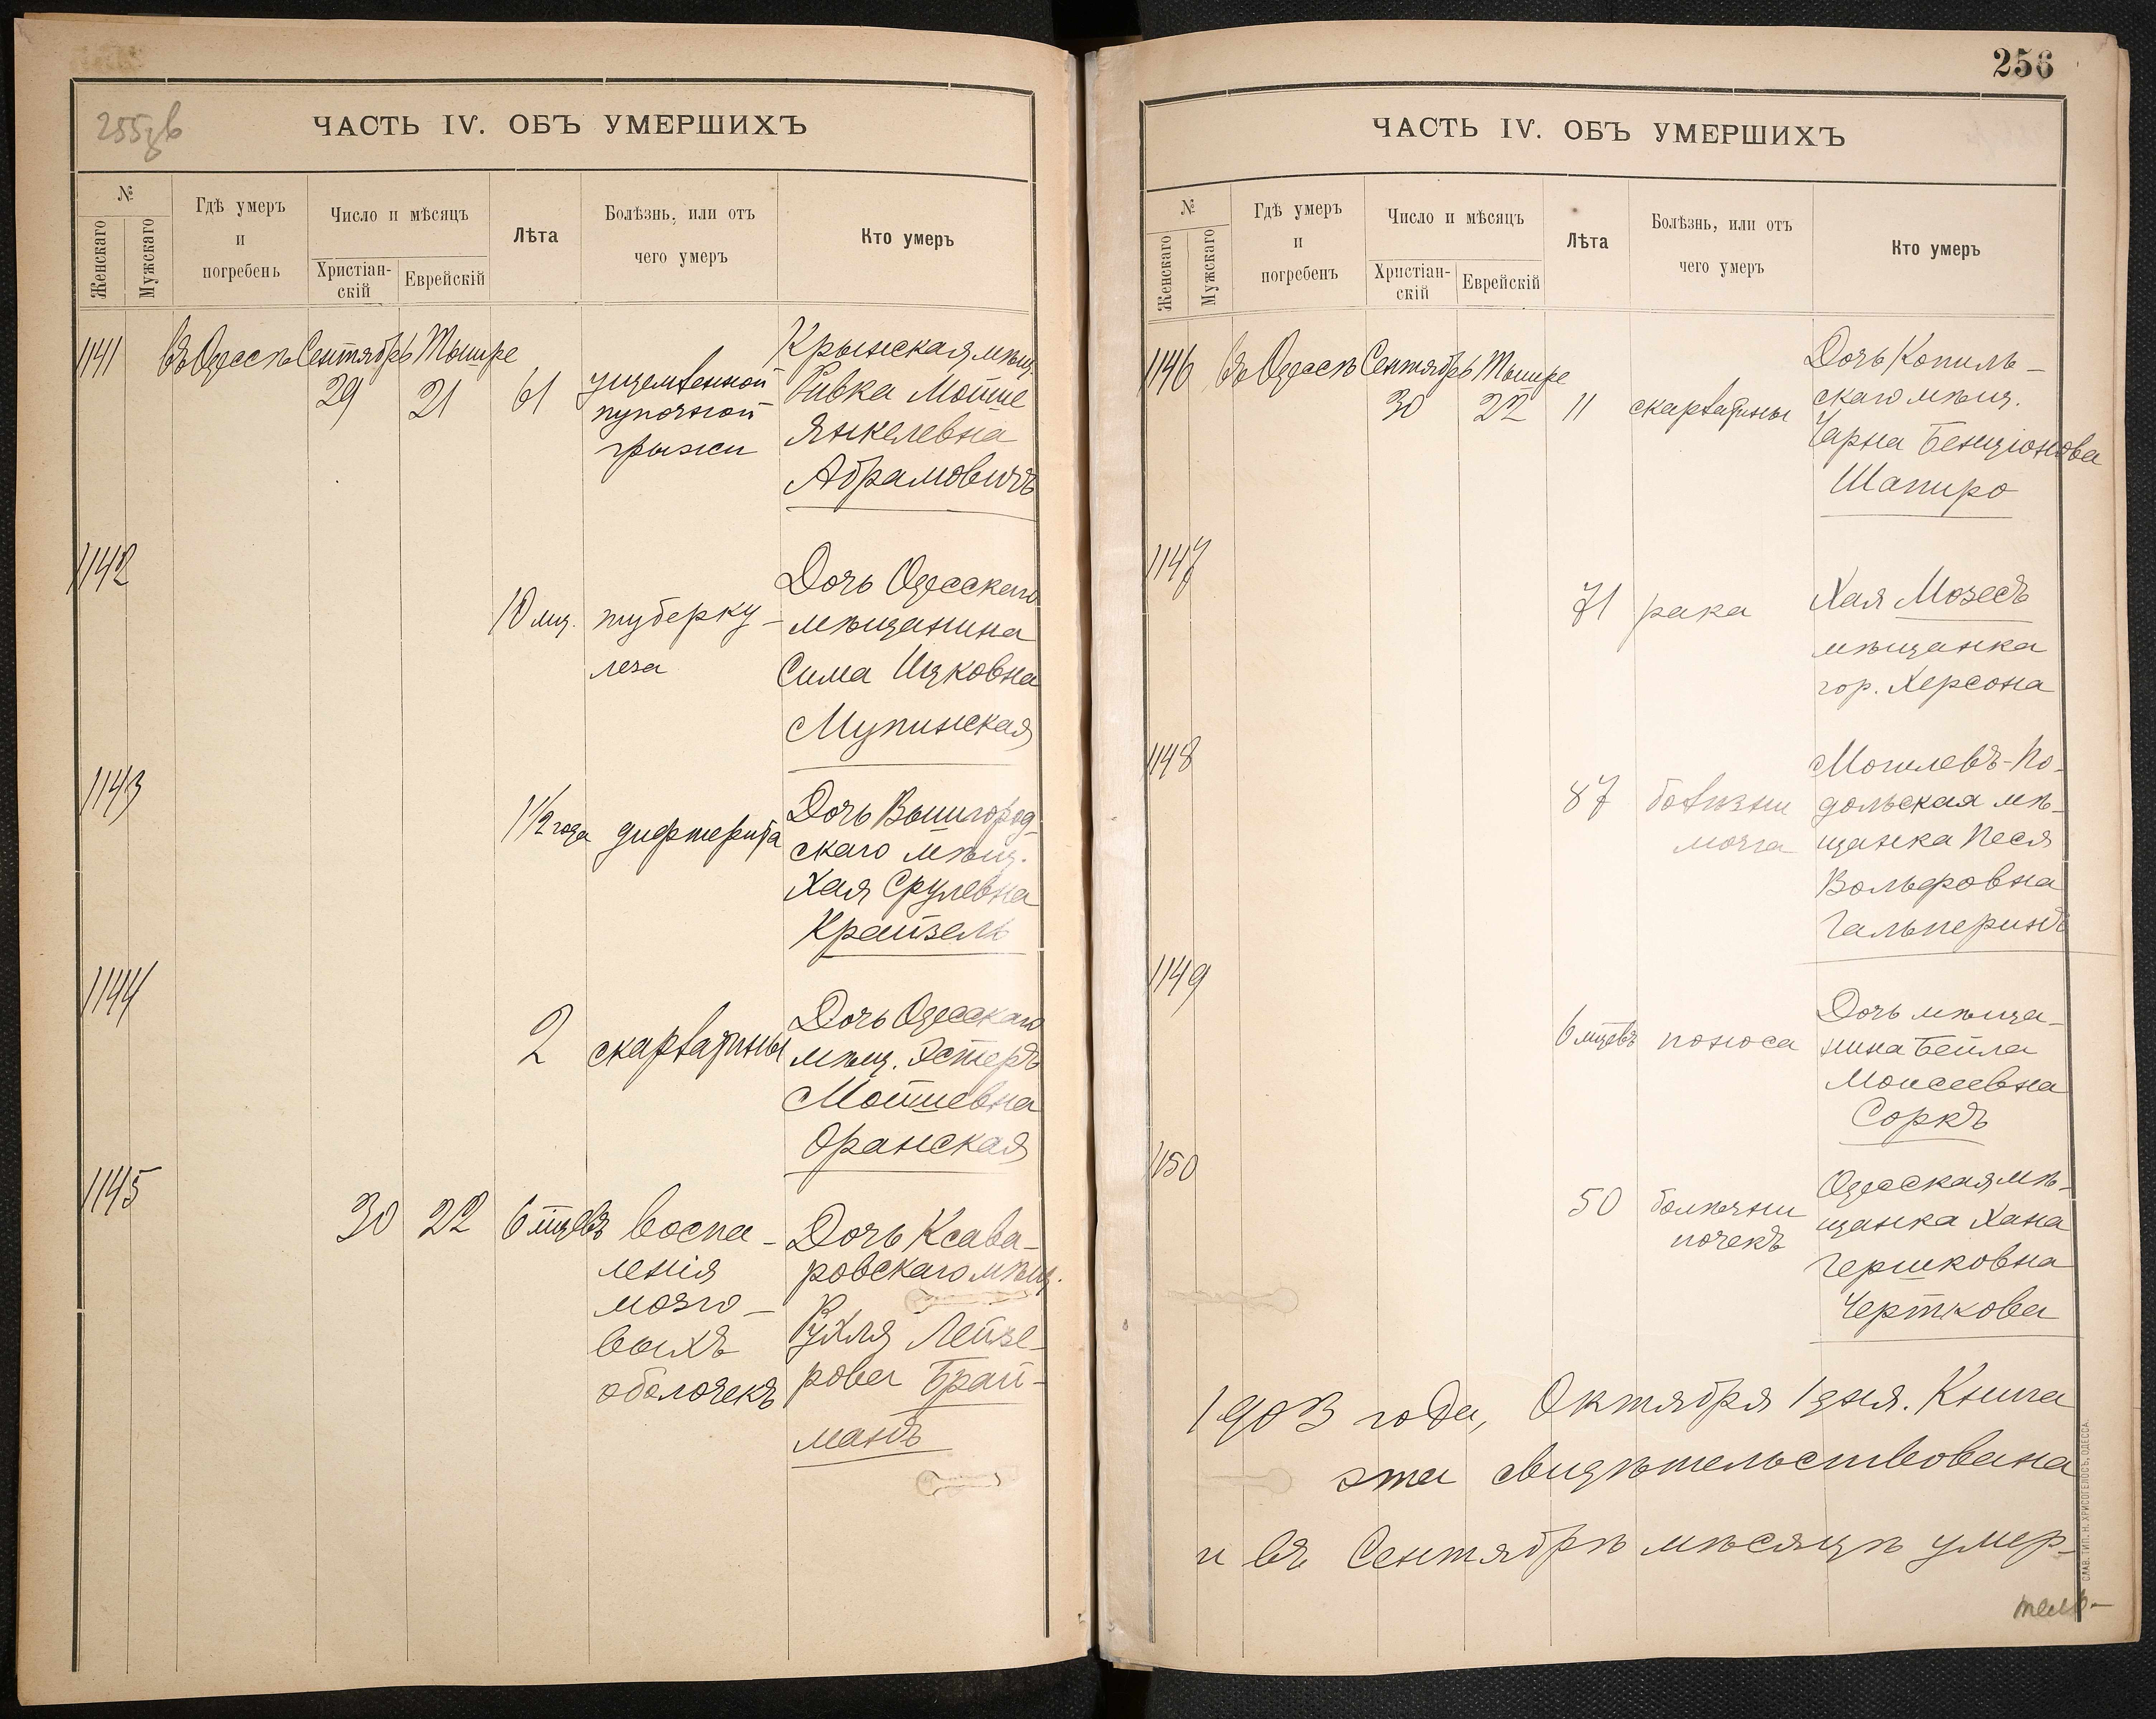 255зв
ЧАСТЬ IV. ОБЪ УМЕРШИХЪ
№
Женскаго
Мужскаго
Гдѣ умеръ
и
погребенъ
Число и мѣсяцъ
Христіан-
скій
Еврейскій
Лѣта
Болѣзнь, или отъ
чего умеръ
Кто умеръ
1141 въ Одессѣ Сентябрь Тышре
29 21 61
ущемленной
пупочной
грыжи
Крымская мѣщ.
Ривка Мотте
Янкелевна
Абрамовичъ
1142
10 мц. туберку-
леза
Дочь Одесскаго
мѣщанина
Сима Ицковна
Мупинская
1143
1 1/2 года дифтерита
Дочь Вышгород-
скаго мѣщ.
Хая Срулевна
Крейзель
1144
2 скарлатины
Дочь Одесскаго
мѣщ. Эстеръ
Мотшевна
Оранская
1145
30 22 6 мцевъ воспа-
ленія
мозго-
выхъ
оболочекъ
Дочь Ксава-
ровскаго мѣщ.
Рухля Лейзе-
рова Брай-
манъ
256
ЧАСТЬ IV. ОБЪ УМЕРШИХЪ
№
Женскаго
Мужскаго
Гдѣ умеръ
и
погребенъ
Число и мѣсяцъ
Христіан-
скій
Еврейскій
Лѣта
Болѣзнь, или отъ
чего умеръ
Кто умеръ
1146 въ Одессѣ Сентябрь Тышре
30 22 11 скарлатины
Дочь Копиль-
скаго мѣщ.
Чарна Бенціонова
Шапиро
1147
71 рака
Хая Мозесъ
мѣщанка
гор. Херсона
1148
87 болѣзни
мозга
Могилевъ-По-
дольская мѣ-
щанка Песя
Вольфовна
Гальперинъ
1149
6 мцевъ поноса
Дочь мѣща-
нина Бейла
Моисеевна
Соркъ
1150
50 болѣзни
почекъ
Одесская мѣ-
щанка Хана
Гершковна
Черткова
1903 года, Октября 1 дня. Книга
эта свидѣтельствована
и въ Сентябрѣ мѣсяцѣ умер-
СЛАВ. ТИП. Н. ХРИСОГЕЛОСЪ, ОДЕССА.